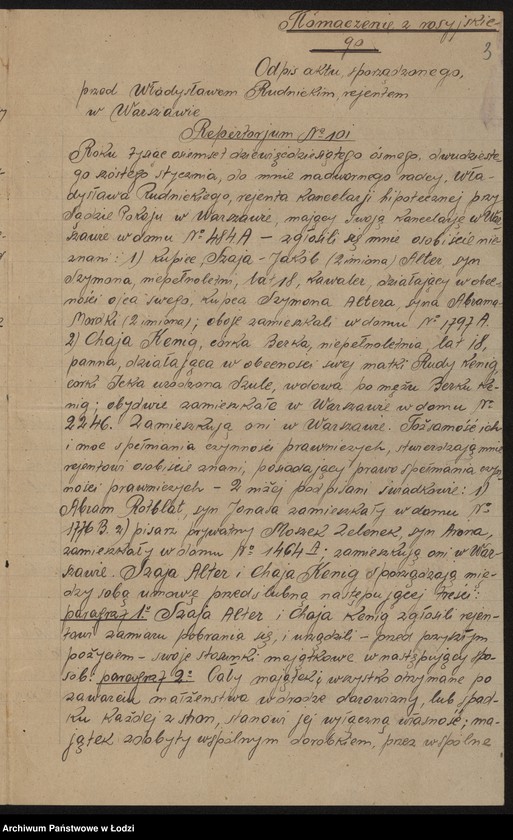 Tłómaczenie z rosyjskie-
go
3
Odpis aktu, sporządzonego,
przed Władysławem Rudnickim, rejentem
w Warszawie
Repertorjum № 101
Roku tysiąc osiemset dziewięćdziesiątego ósmego, dwudzieste-
go szóstego stycznia, do mnie nadwornego radcy, Wła-
dysława Rudnickiego, rejenta Kancelarji hipotecznej przy
Sądzie Pokoju w Warszawie, mający swoją kancelarję w War-
szawie w domu № 484A – zgłosili się mnie osobiście nie-
znani: 1) kupiec Szaja-Jakób (2 imiona) Alter, syn
Szymona, niepełnoletni, lat 18, kawaler, działający w obec-
ności ojca swego, kupca Szymona Altera, syna Abrama-
(2 imiona); oboje zamieszkali w domu № 1797 A.
2) Chaja Kenig, córka Berka, niepełnoletnia, lat 18,
panna, działająca w obecności swej matki Rudy Kenig,
córki Icka urodzona Szulc, wdowa po mężu Berku Ke-
nig; obydwie zamieszkałe w Warszawie w domu №
2246. Zamieszkują oni w Warszawie. Tożsamość ich
i moc spełniania czynności prawniczych, stwierdzają mnie
rejentowi osobiście znani, posiadający prawo spełniania czyn-
ności prawniczych – 2 niżej podpisani świadkowie: 1)
Abram Rotblat, syn Jonasa zamieszkały w domu №
1776 B. 2) pisarz prywatny Moszek Zelenek, syn Arona,
zamieszkały w domu № 1464 A; zamieszkują oni w War-
szawie. Szaja Alter i Chaja Kenig sporządzają mię-
dzy sobą umowę przedślubną następującej treści:
paragraf 1: Szaja Alter i Chaja Kenig zgłosili rejen-
towi zamiar pobrania się, i urządzili – przed przyszłym
pożyciem – swoje stosunki majątkowe w następujący spo-
sób: paragraf 2: Cały majątek i wszystko otrzymane po
zawarciu małżeństwa w drodze darowizny, lub spad-
ku każdej z stron, stanowi jej wyłączną własność; ma-
jątek zdobyty wspólnym dorobkiem, przez wspólne
Archiwum Państwowe w Łodzi